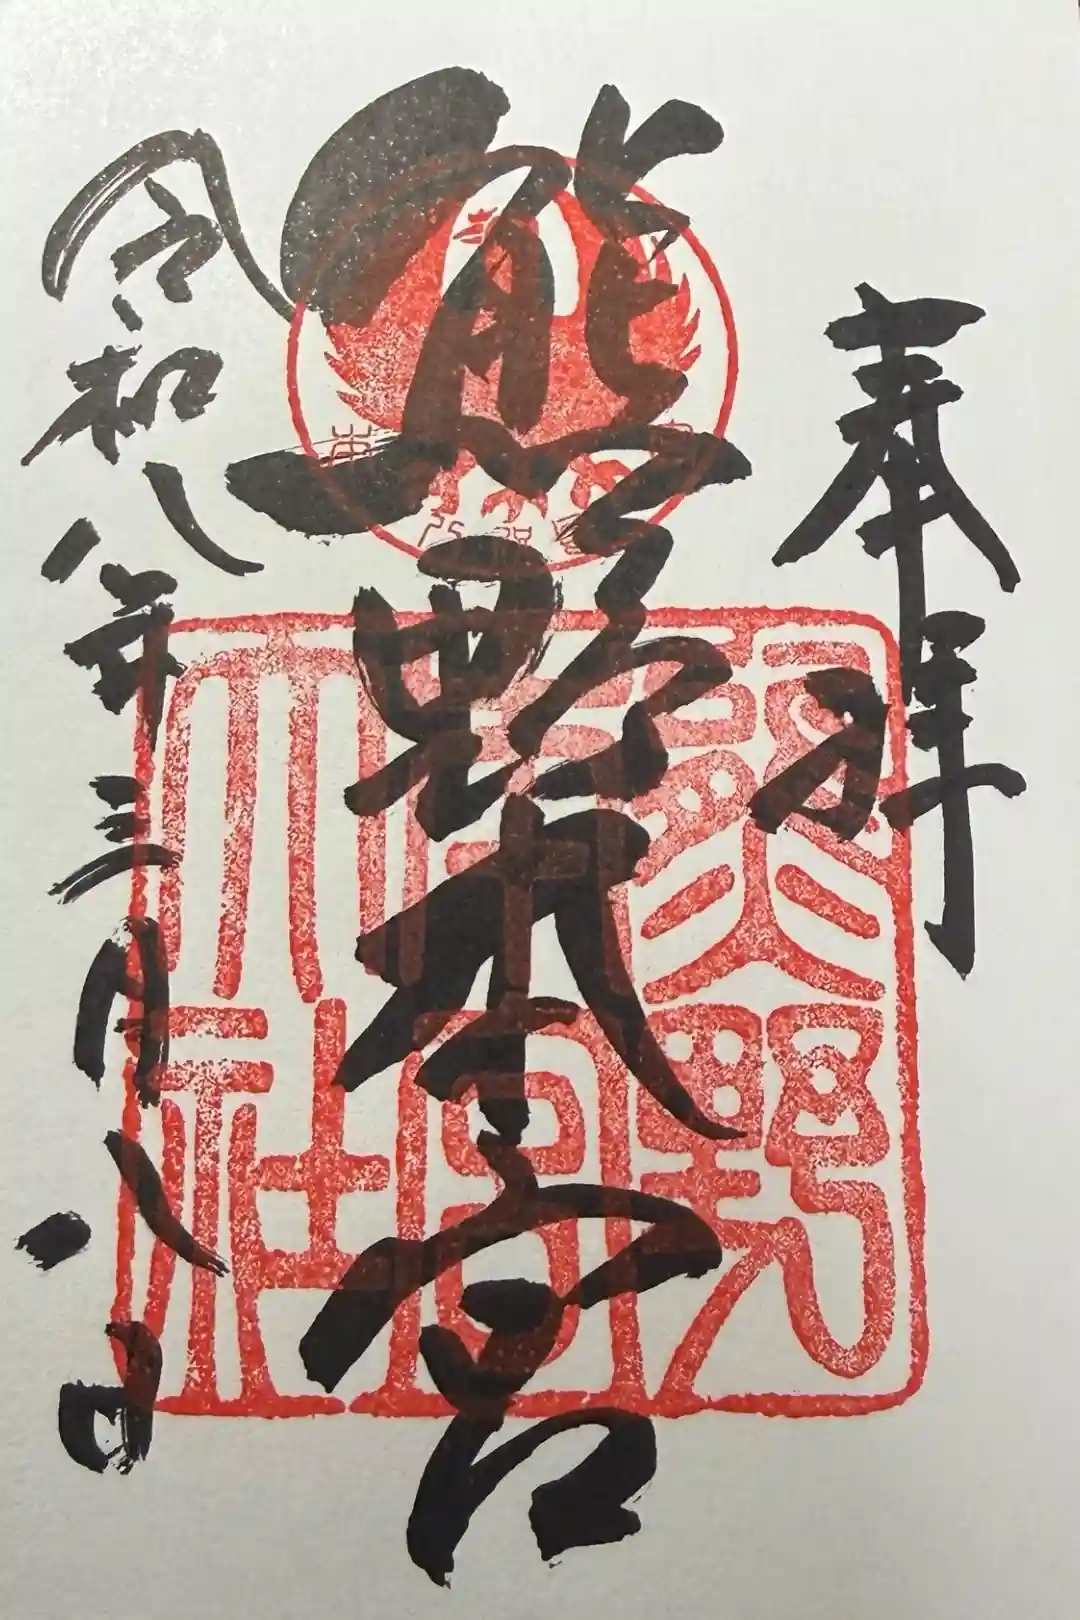 奉拝
熊野本宮
令和八年三月八日
熊野
本宮
大社